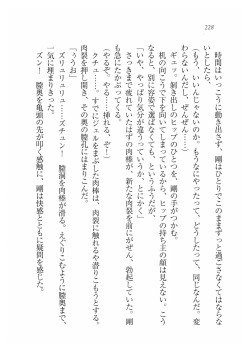 228
時間はいっこうに動き出さず、剛はひとりでこのままずっと過ごさなくてはならな
い。いいんじゃないのか。もうなにやったって、どうしたって、同じなんだ。変
わらないんだし、ぜんぜん……)
ギュッ。剝き出しのヒップのひとつを、剛の手がつかむ。
机の向こうで下を向いてしまっているから、ヒップの持ち主の顔は見えない。こう
なると、別に容姿で選ばなくても、というふうだが、
(いや、やっぱり気分が違うっていうか、とにかく……)
さっきまで疲れていたはずの肉棒が、新たな肉裂を前にがぜん、勃起していた。剛
も急にたかぶってくる。
(やるぞ、やる……挿れる、ぞ!)
クチュ……。すでにジュルをまみれた肉棒は、肉裂に触れるや滑りこもうとする。
肉裂を押し開き、その奥の膣孔にはまりこんだ。
「ううお」
ズリュリュリュ……ズチュン! 膣洞を肉棒が滑る。えぐりこむように膣奥まで、
一気に埋まりきった。
ズン! 膣奥を亀頭の先が叩く感触に、剛は快感とともに疑問を感じた。